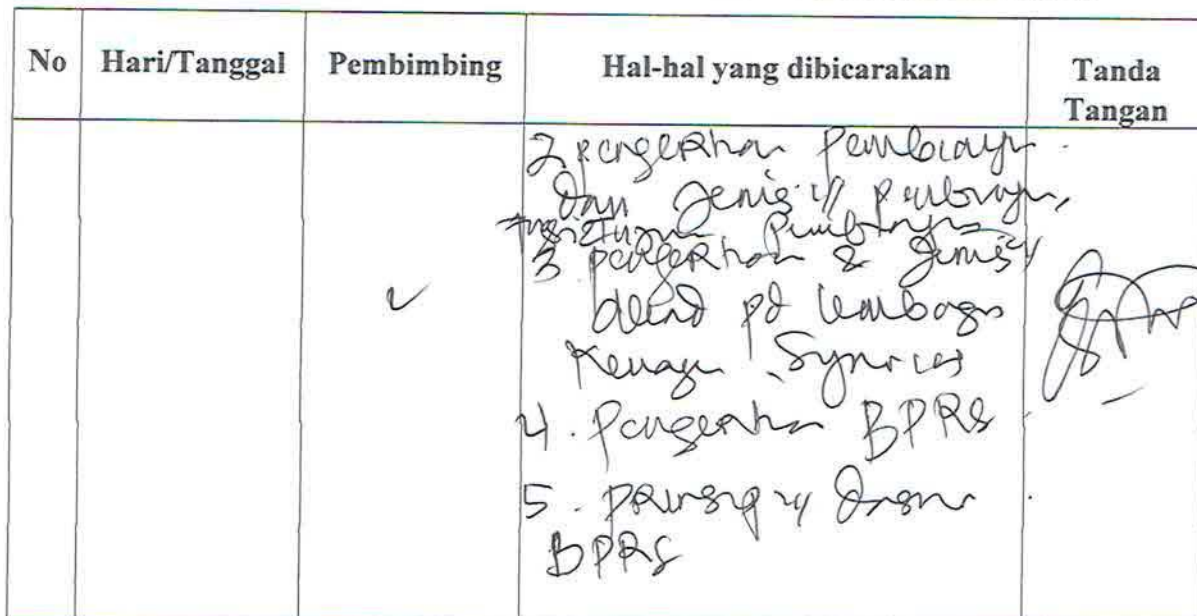 No Hari/Tanggal Pembimbing Hal-hal yang dibicarakan Tanda Tangan
2. pengertian Pembiayn
dan Jenis" pembiayn,
Pembiayn
3 pengertian & Jenis"
akad pd lembaga
Keuagn Syariah
4. Pengertian BPRS
5. prinsip" dasar
BPRS